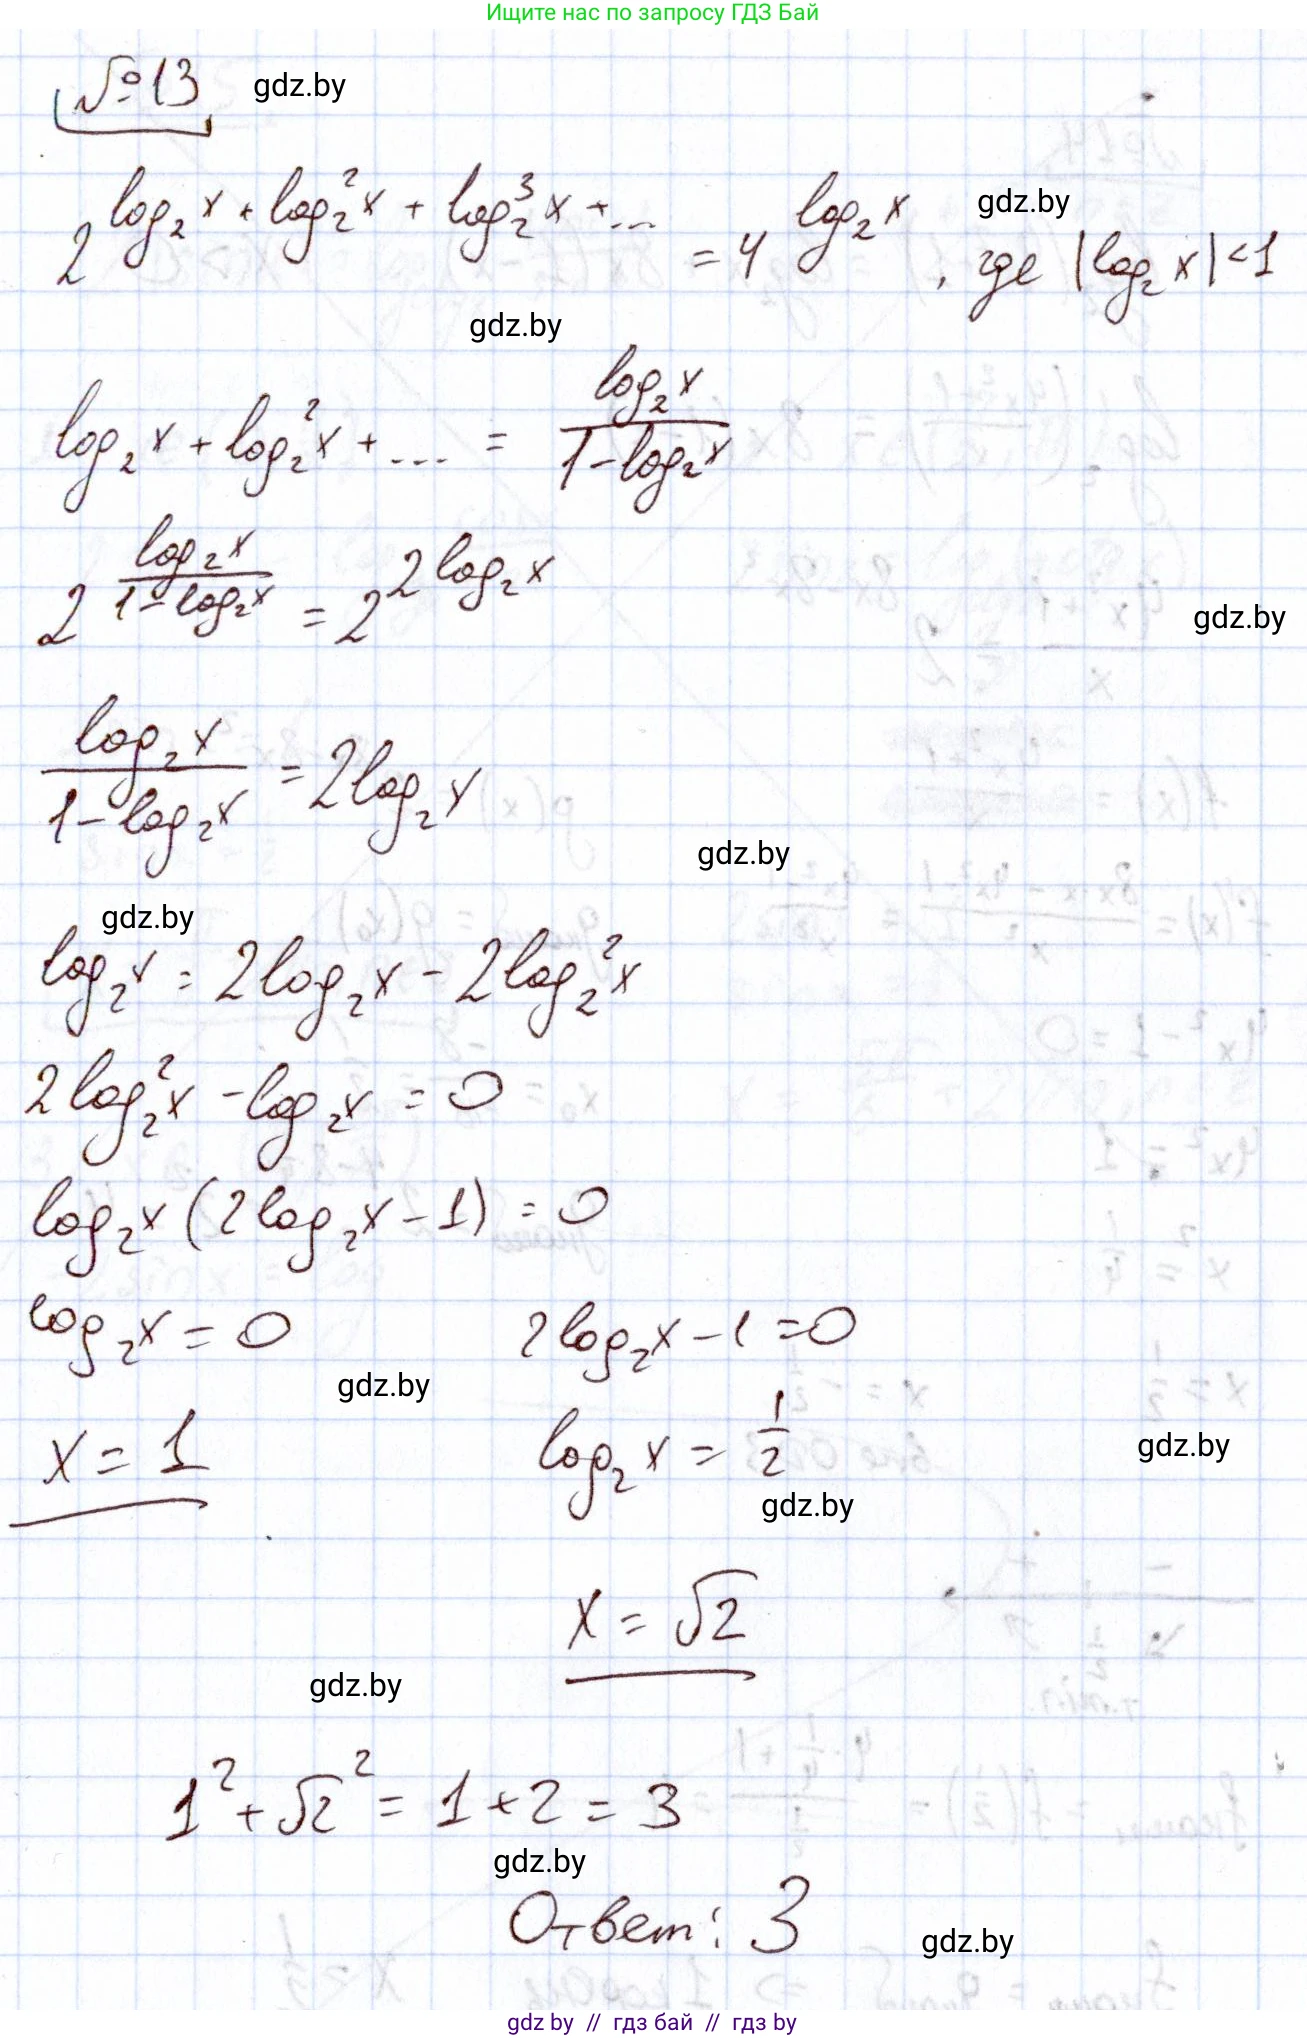 Ищите нас по запросу ГДЗ Бай
№13 gdz.by
2^(log₂x + log₂²x + log₂³x + ...) = 4^(log₂x), где |log₂x| < 1 gdz.by
gdz.by
log₂x + log₂²x + ... = log₂x / (1 - log₂x)
2^(log₂x / (1 - log₂x)) = 2^(2log₂x)
gdz.by
log₂x / (1 - log₂x) = 2log₂x
gdz.by
gdz.by
log₂x = 2log₂x - 2log₂²x
2log₂²x - log₂x = 0
log₂x (2log₂x - 1) = 0
log₂x = 0 2log₂x - 1 = 0
gdz.by
x = 1 log₂x = 1/2 gdz.by
gdz.by
x = √2
gdz.by
1² + √2² = 1 + 2 = 3
gdz.by
Ответ: 3 gdz.by
gdz.by // гдз бай // гдз by